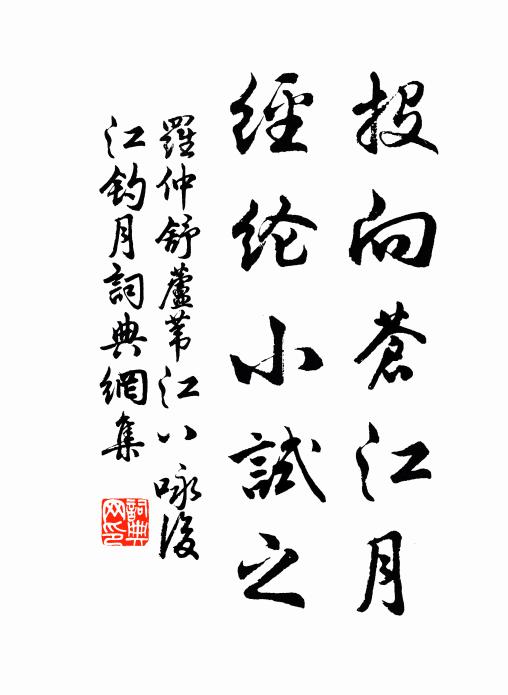 投向蒼江月
經纶小試之
羅仲舒蘆葦江八咏後
江釣月詞典網集
詞典
网印